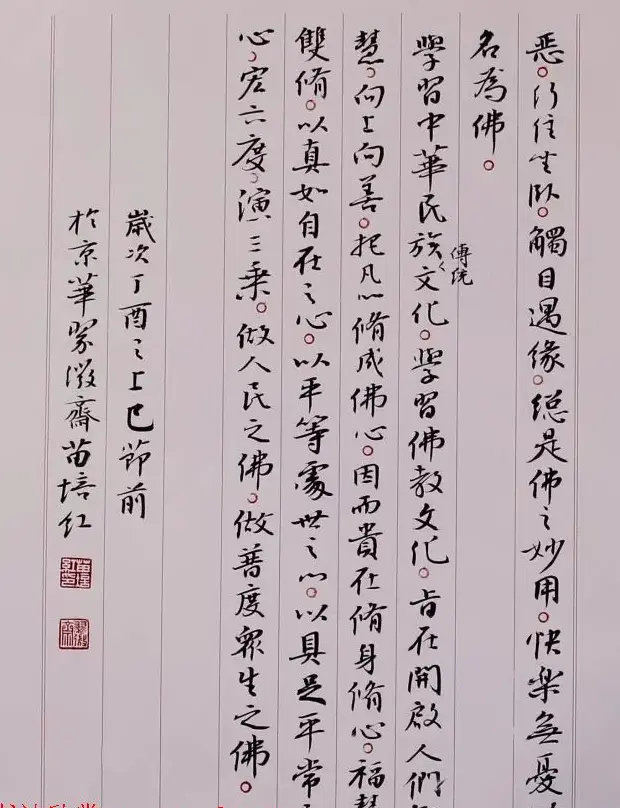 恶。行住坐臥。觸目遇緣。總是佛之妙用。快樂無憂
名為佛。
學習中華民族傳統文化。學習佛教文化。旨在開啟人們
慧。向上向善。把凡心脩成佛心。因而貴在脩身脩心。福慧
雙脩。以真如自在之心。以平等處世之心。以具足平常
心。宏六度。演三乘。做人民之佛。做普度眾生之佛。
歲次丁酉之上巳節前
於京華翠微齋苗培紅